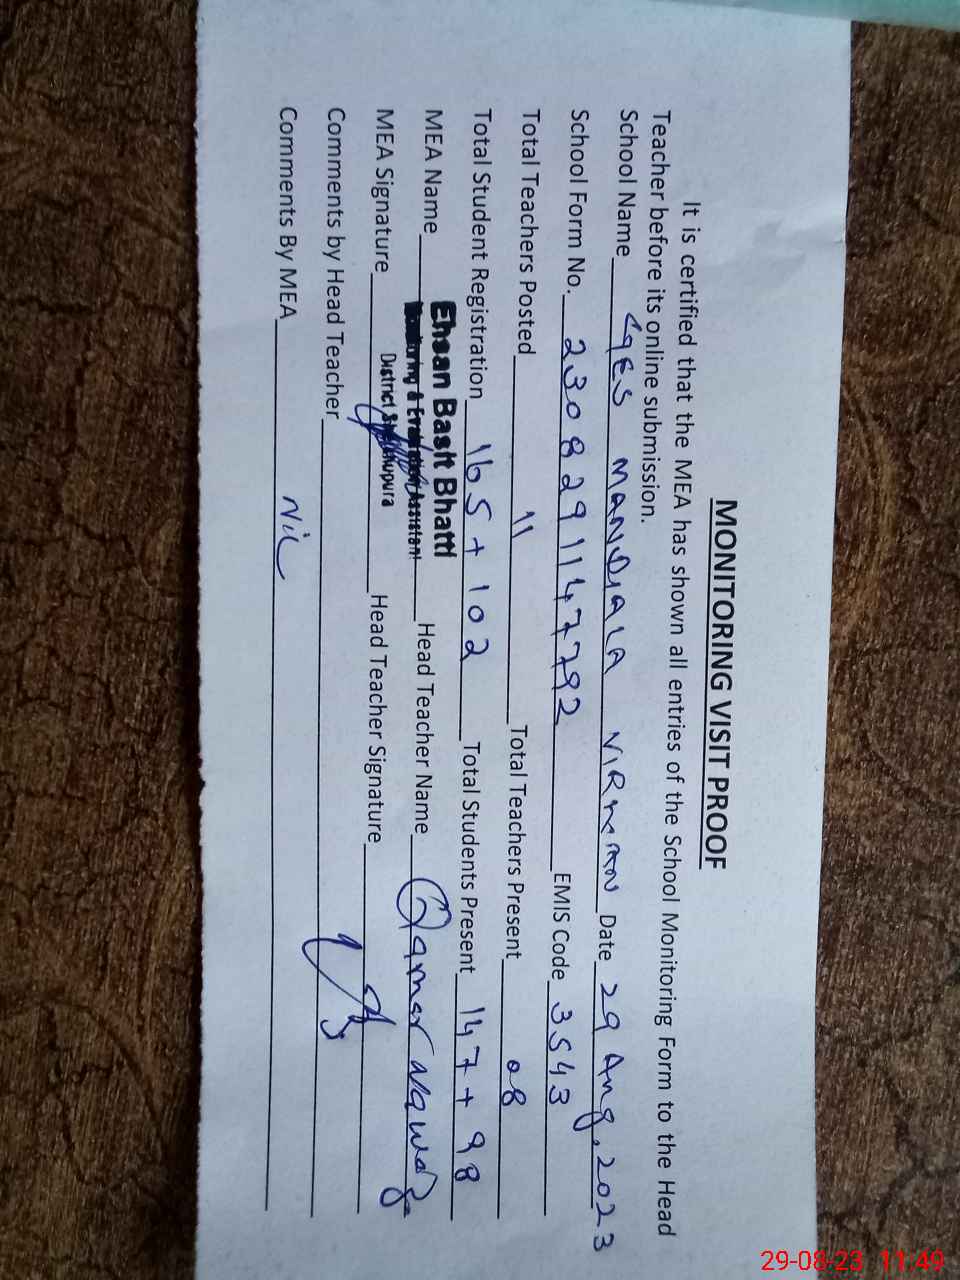 MONITORING VISIT PROOF
It is certified that the MEA has shown all entries of the School Monitoring Form to the Head
Teacher before its online submission.
School Name GGES MANDIALA VIRMAN Date 29 Aug, 2023
School Form No. 23082911147792 EMIS Code 3543
Total Teachers Posted 11 Total Teachers Present 08
Total Student Registration 165 + 102 Total Students Present 147 + 98
MEA Name Ehsan Basit Bhatti Head Teacher Name Qamar Nawaz
Monitoring & Evaluation Assistant
MEA Signature District Sheikhupura Head Teacher Signature
Comments by Head Teacher
Comments By MEA Nil
29-08-23 11:49